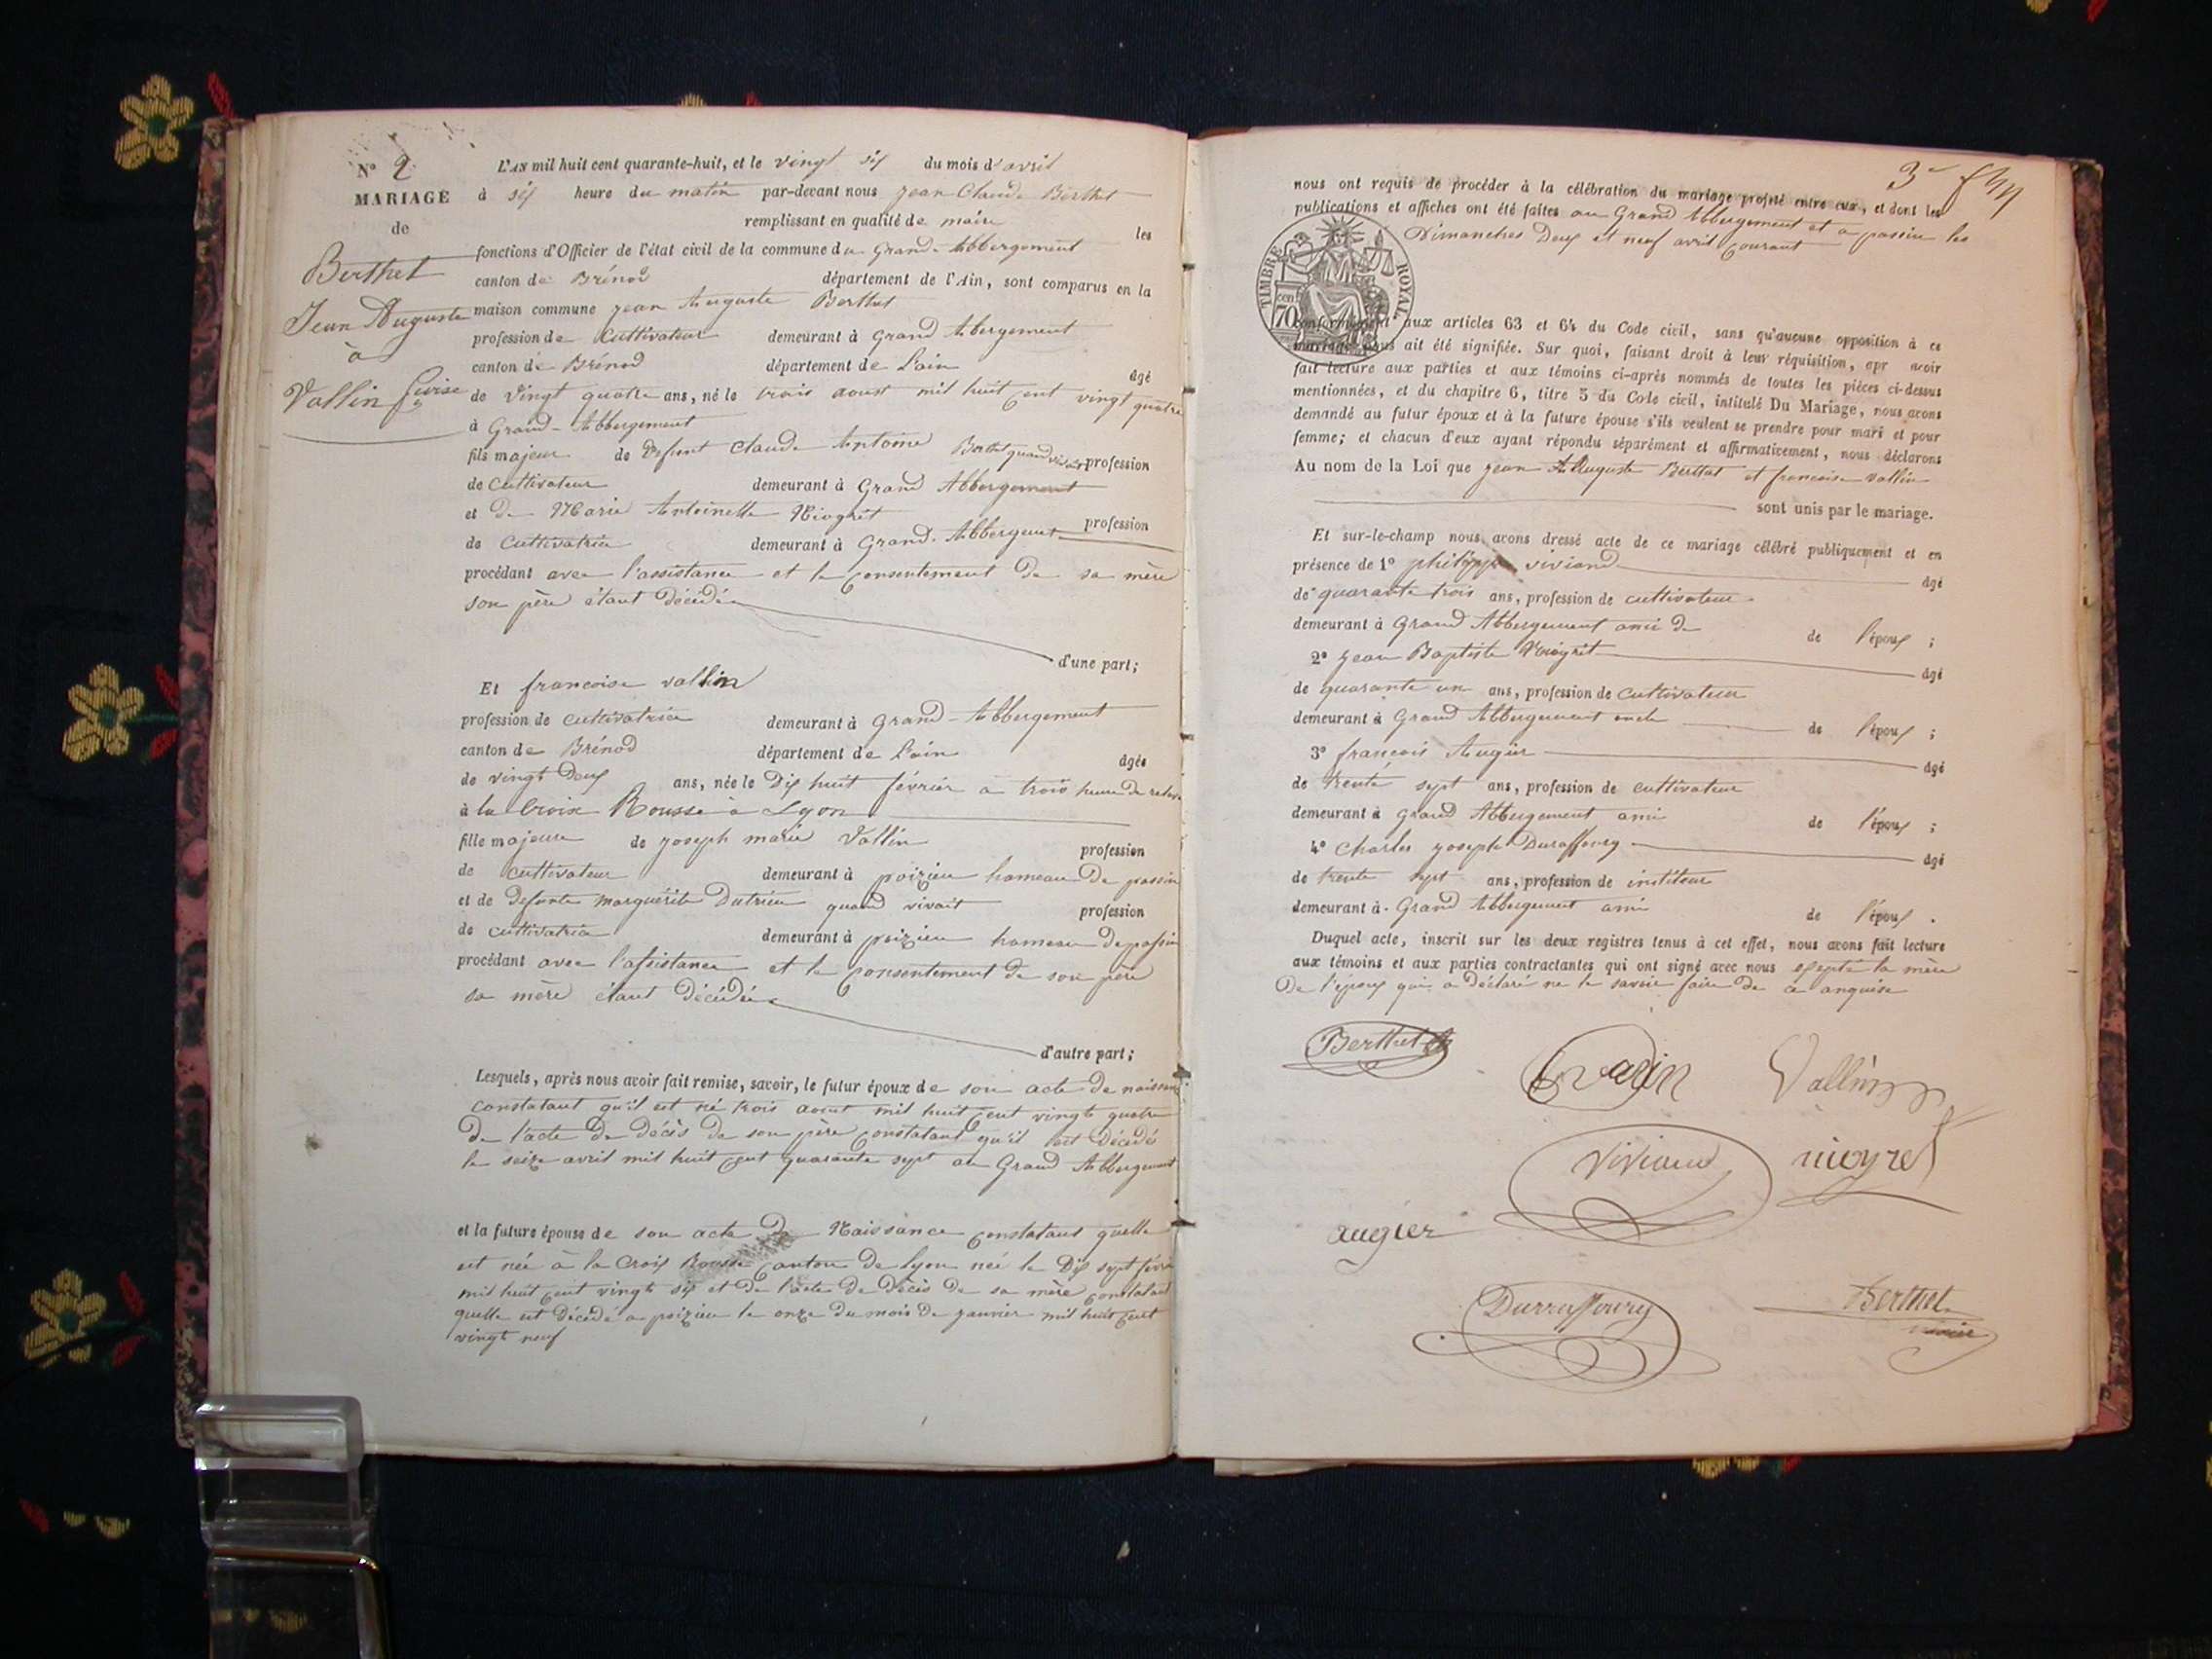 N° 2
MARIAGE
de
Berthet
Jean Auguste
à
Vallin
L'AN mil huit cent quarante-huit, et le vingt six du mois d'avril
à six heure du matin par-devant nous jean Claude Berthet
remplissant en qualité de maire les
fonctions d'Officier de l'état civil de la commune du Grand-Abbergement
canton de Brénod département de l'Ain, sont comparus en la
maison commune jean Auguste Berthet
profession de Cultivateur demeurant à Grand Abergement
canton de Brénod département de L'ain âgé
de vingt quatre ans, né le trois aoust mil huit cent vingt quatre
à Grand-Abbergement
fils majeur de Defunt Claude Antoine Berthet quand vivait profession
de Cultivateur demeurant à Grand Abbergement
et De Marie Antoinette Niogret profession
de Cultivatrice demeurant à Grand-Abbergemt
procédant avec l'assistance et le consentement De sa mère
son père étant Décédé
d'une part;
Et francoise vallin
profession de cultivatrice demeurant à Grand-Abbergement
canton de Brénod département de L'ain âgée
de vingt Deux ans, née le Dix huit février à trois heure De
à la Croix Rousse à Lyon
fille majeure de joseph marie Vallin profession
de cultivateur demeurant à poizieu hameau De passin
et de Defunte marguérite Dutrieu quand vivait profession
de cultivatrice demeurant à poizieu hameau De passin
procédant avec l'assistance et le consentement De son père
sa mère étant Décédée
d'autre part;
Lesquels, après nous avoir fait remise, savoir, le futur époux de son acte De naissance
constatant qu'il est né trois aout mil huit cent vingt quatre
De l'acte De Décès De son père constatant qu'il est Décédé
le seize avril mil huit cent quarante sept au Grand Abbergement
et la future épouse de son acte De Naissance constatant quelle
est née à la Croix Rousse canton De Lyon née le Dix sept févri
mil huit cent vingt six et De l'acte De Décès De sa mère constatant
quelle est Décédé a poizieu le onze Du mois De janvier mil huit cent
vingt neuf
3
nous ont requis de procéder à la célébration du mariage projeté entre eux, et dont les
publications et affiches ont été faites au Grand Abbergement et a passin les
Dimanches Deux et neuf avril courant
TIMBRE ROYAL
70 cen
conformément aux articles 63 et 64 du Code civil, sans qu'aucune opposition à ce
mariage nous ait été signifiée. Sur quoi, faisant droit à leur réquisition, apr avoir
fait lecture aux parties et aux témoins ci-après nommés de toutes les pièces ci-dessus
mentionnées, et du chapitre 6, titre 5 du Code civil, intitulé Du Mariage, nous avons
demandé au futur époux et à la future épouse s'ils veulent se prendre pour mari et pour
femme; et chacun d'eux ayant répondu séparément et affirmativement, nous déclarons
Au nom de la Loi que jean Auguste Berthet et francoise vallin
sont unis par le mariage.
Et sur-le-champ nous avons dressé acte de ce mariage célébré publiquement et en
présence de 1° philippe viviand âgé
de quarante trois ans, profession de cultivateur
demeurant à Grand Abbergement ami De de l'époux ;
2° jean Baptiste Niogret âgé
de quarante un ans, profession de Cultivateur
demeurant à Grand Abbergement oncle de l'époux ;
3° francois Augier âgé
de trente sept ans, profession de cultivateur
demeurant à Grand Abbergement ami de l'époux ;
4° Charles joseph Duraffourg âgé
de trente sept ans, profession de instituteur
demeurant à Grand Abbergement ami de l'époux .
Duquel acte, inscrit sur les deux registres tenus à cet effet, nous avons fait lecture
aux témoins et aux parties contractantes qui ont signé avec nous excepté la mère
De l'époux qui a Déclaré ne le savoir faire De ce anquise
Berthet
Vallin
viviand niogret
augier
Durraffourg Berthet
maire